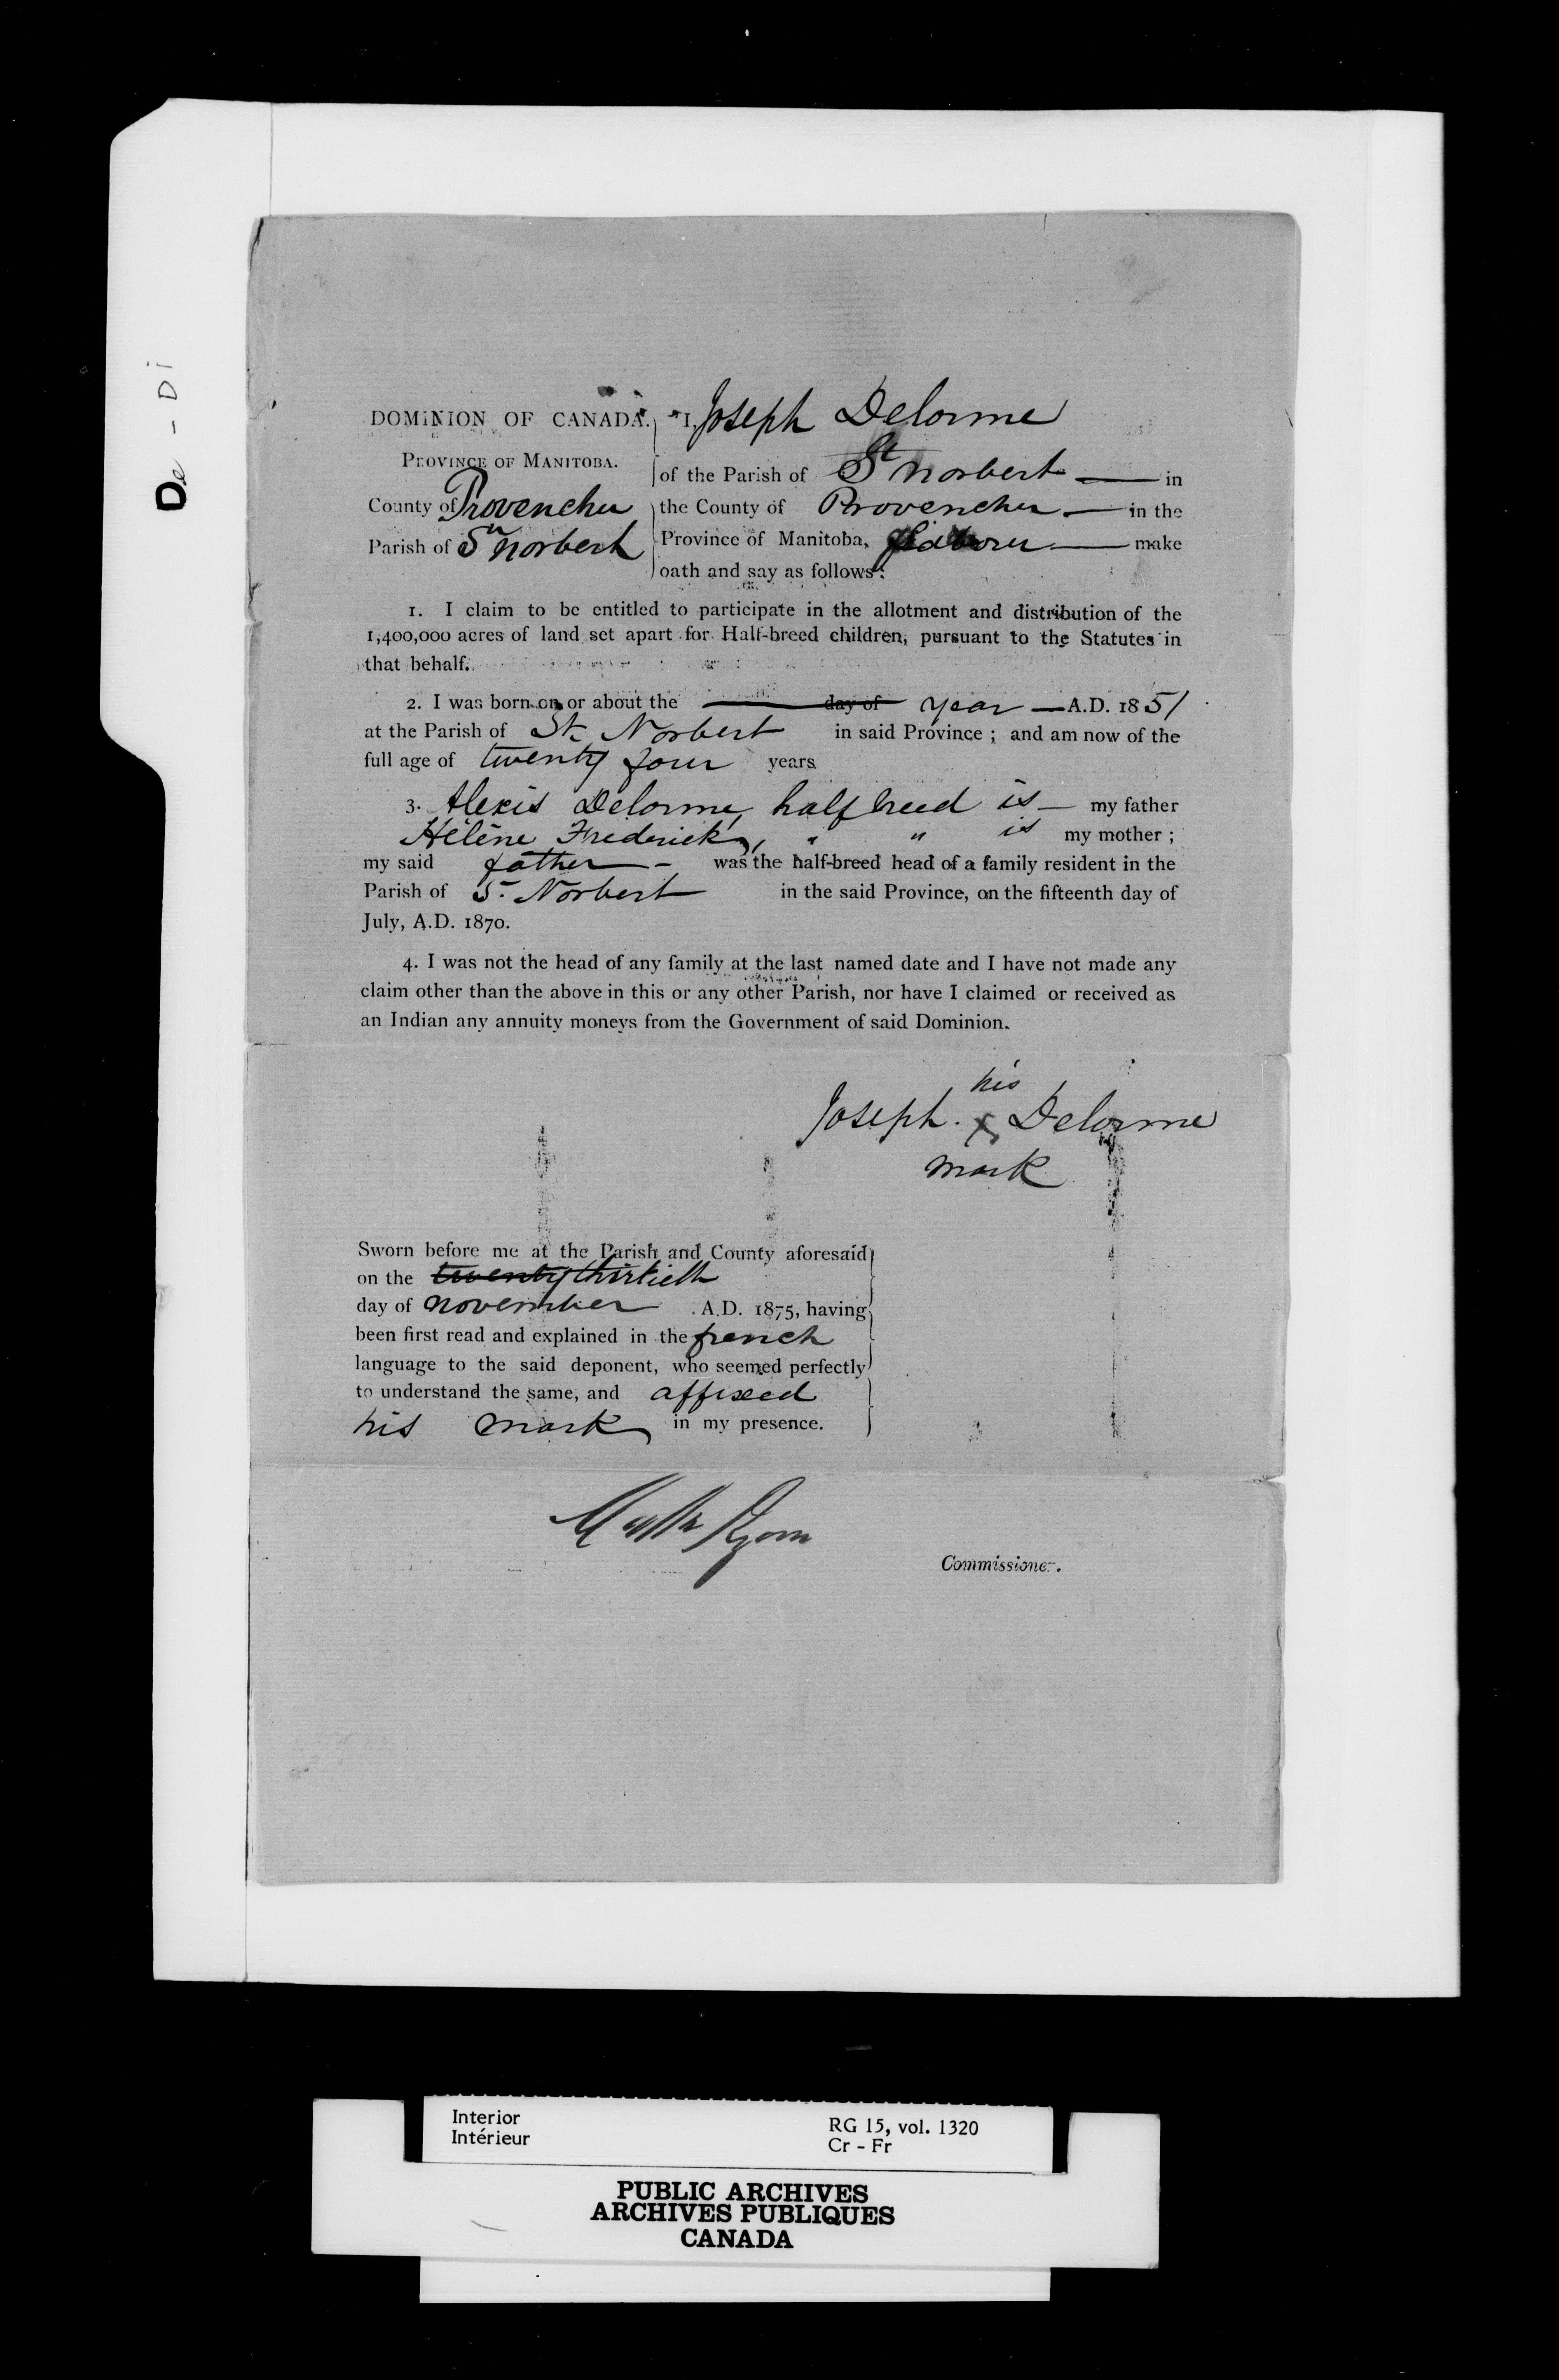 De - Di
DOMINION OF CANADA. I, Joseph Delorme
PROVINCE OF MANITOBA. of the Parish of St Norbert — in
County of Provencher the County of Provencher — in the
Parish of St Norbert Province of Manitoba, — make
oath and say as follows:
1. I claim to be entitled to participate in the allotment and distribution of the
1,400,000 acres of land set apart for Half-breed children, pursuant to the Statutes in
that behalf.
2. I was born on or about the — day of year — A.D. 1851
at the Parish of St. Norbert in said Province ; and am now of the
full age of twenty four years
3. Alexis Delorme, half breed is — my father
Hélène Frederick, " " is my mother ;
my said father — was the half-breed head of a family resident in the
Parish of St. Norbert in the said Province, on the fifteenth day of
July, A.D. 1870.
4. I was not the head of any family at the last named date and I have not made any
claim other than the above in this or any other Parish, nor have I claimed or received as
an Indian any annuity moneys from the Government of said Dominion.
his
Joseph x Delorme
mark
Sworn before me at the Parish and County aforesaid
on the twenty thirtieth
day of november A.D. 1875, having
been first read and explained in the french
language to the said deponent, who seemed perfectly
to understand the same, and affixed
his mark in my presence.
Matth Ryan
Commissioner.
Interior RG 15, vol. 1320
Intérieur Cr - Fr
PUBLIC ARCHIVES
ARCHIVES PUBLIQUES
CANADA